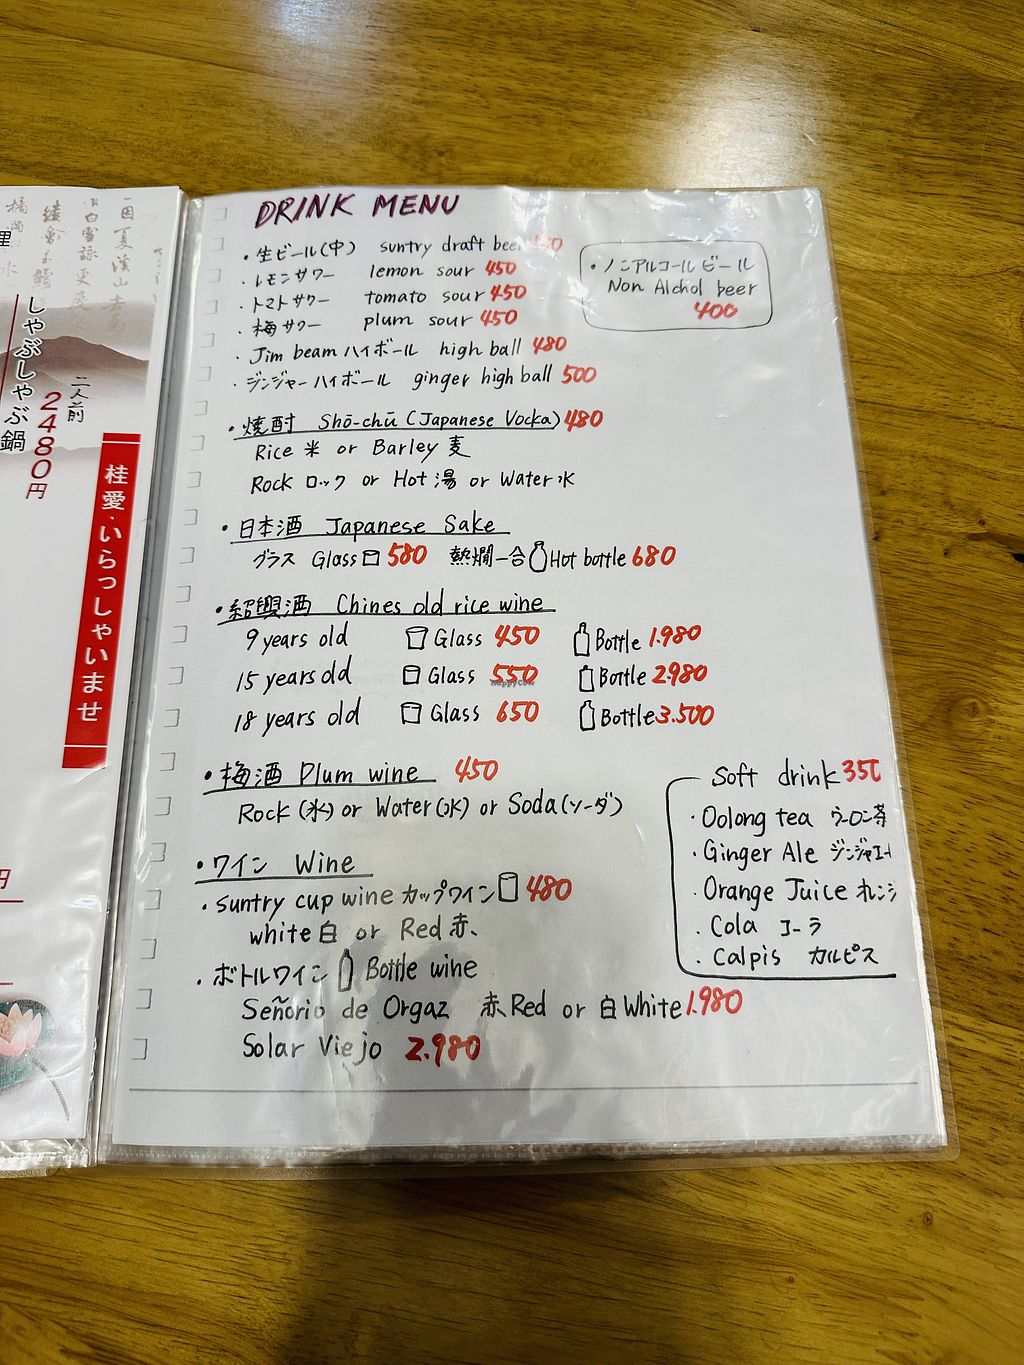 しゃぶしゃぶ鍋
二人前
2480円
桂愛・いらっしゃいませ
DRINK MENU
・生ビール(中) suntry draft beer
・レモンサワー lemon sour 450
・トマトサワー tomato sour 450
・梅サワー plum sour 450
・Jim beam ハイボール high ball 480
・ジンジャーハイボール ginger high ball 500
・ノンアルコールビール
Non Alchol beer
400
・焼酎 Shō-chū (Japanese Vocka) 480
Rice 米 or Barley 麦
Rock ロック or Hot 湯 or Water 水
・日本酒 Japanese Sake
グラス Glass 580 熱燗一合 Hot bottle 680
・紹興酒 Chines old rice wine
9 years old Glass 450 Bottle 1.980
15 years old Glass 550 Bottle 2.980
HappyCow
18 years old Glass 650 Bottle 3.500
・梅酒 Plum wine 450
Rock (氷) or Water (水) or Soda (ソーダ)
・ワイン Wine
・suntry cup wine カップワイン 480
white 白 or Red 赤、
・ボトルワイン Bottle wine
Señorio de Orgaz 赤 Red or 白 White 1.980
Solar Viejo 2.980
Soft drink 350
・Oolong tea ウーロン茶
・Ginger Ale ジンジャエー
・Orange Juice オレンジ
・Cola コーラ
・Calpis カルピス